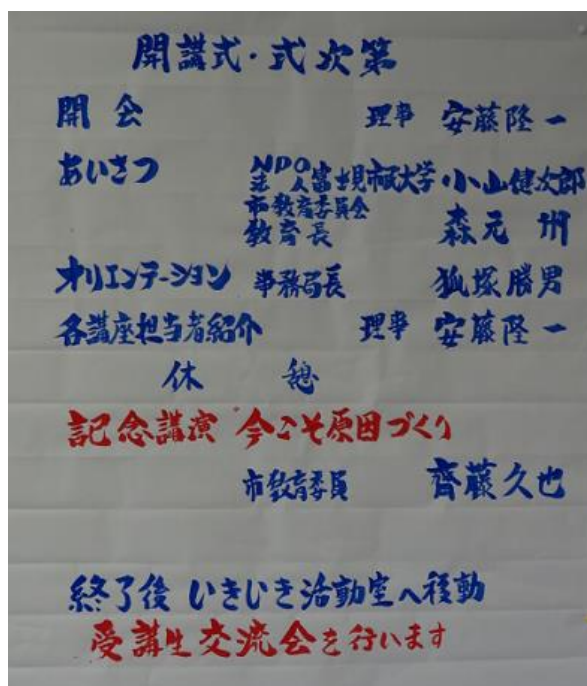 開講式・式次第
開会 理事 安藤隆一
あいさつ NPO法人富士見市民大学 小山健次郎
市教育委員会
教育長 森元 州
オリエンテーション 事務局長 狐塚勝男
各講座担当者紹介 理事 安藤隆一
休憩
記念講演 今こそ原因づくり
市教育委員 齊藤久也
終了後 いきいき活動室へ移動
受講生交流会を行います